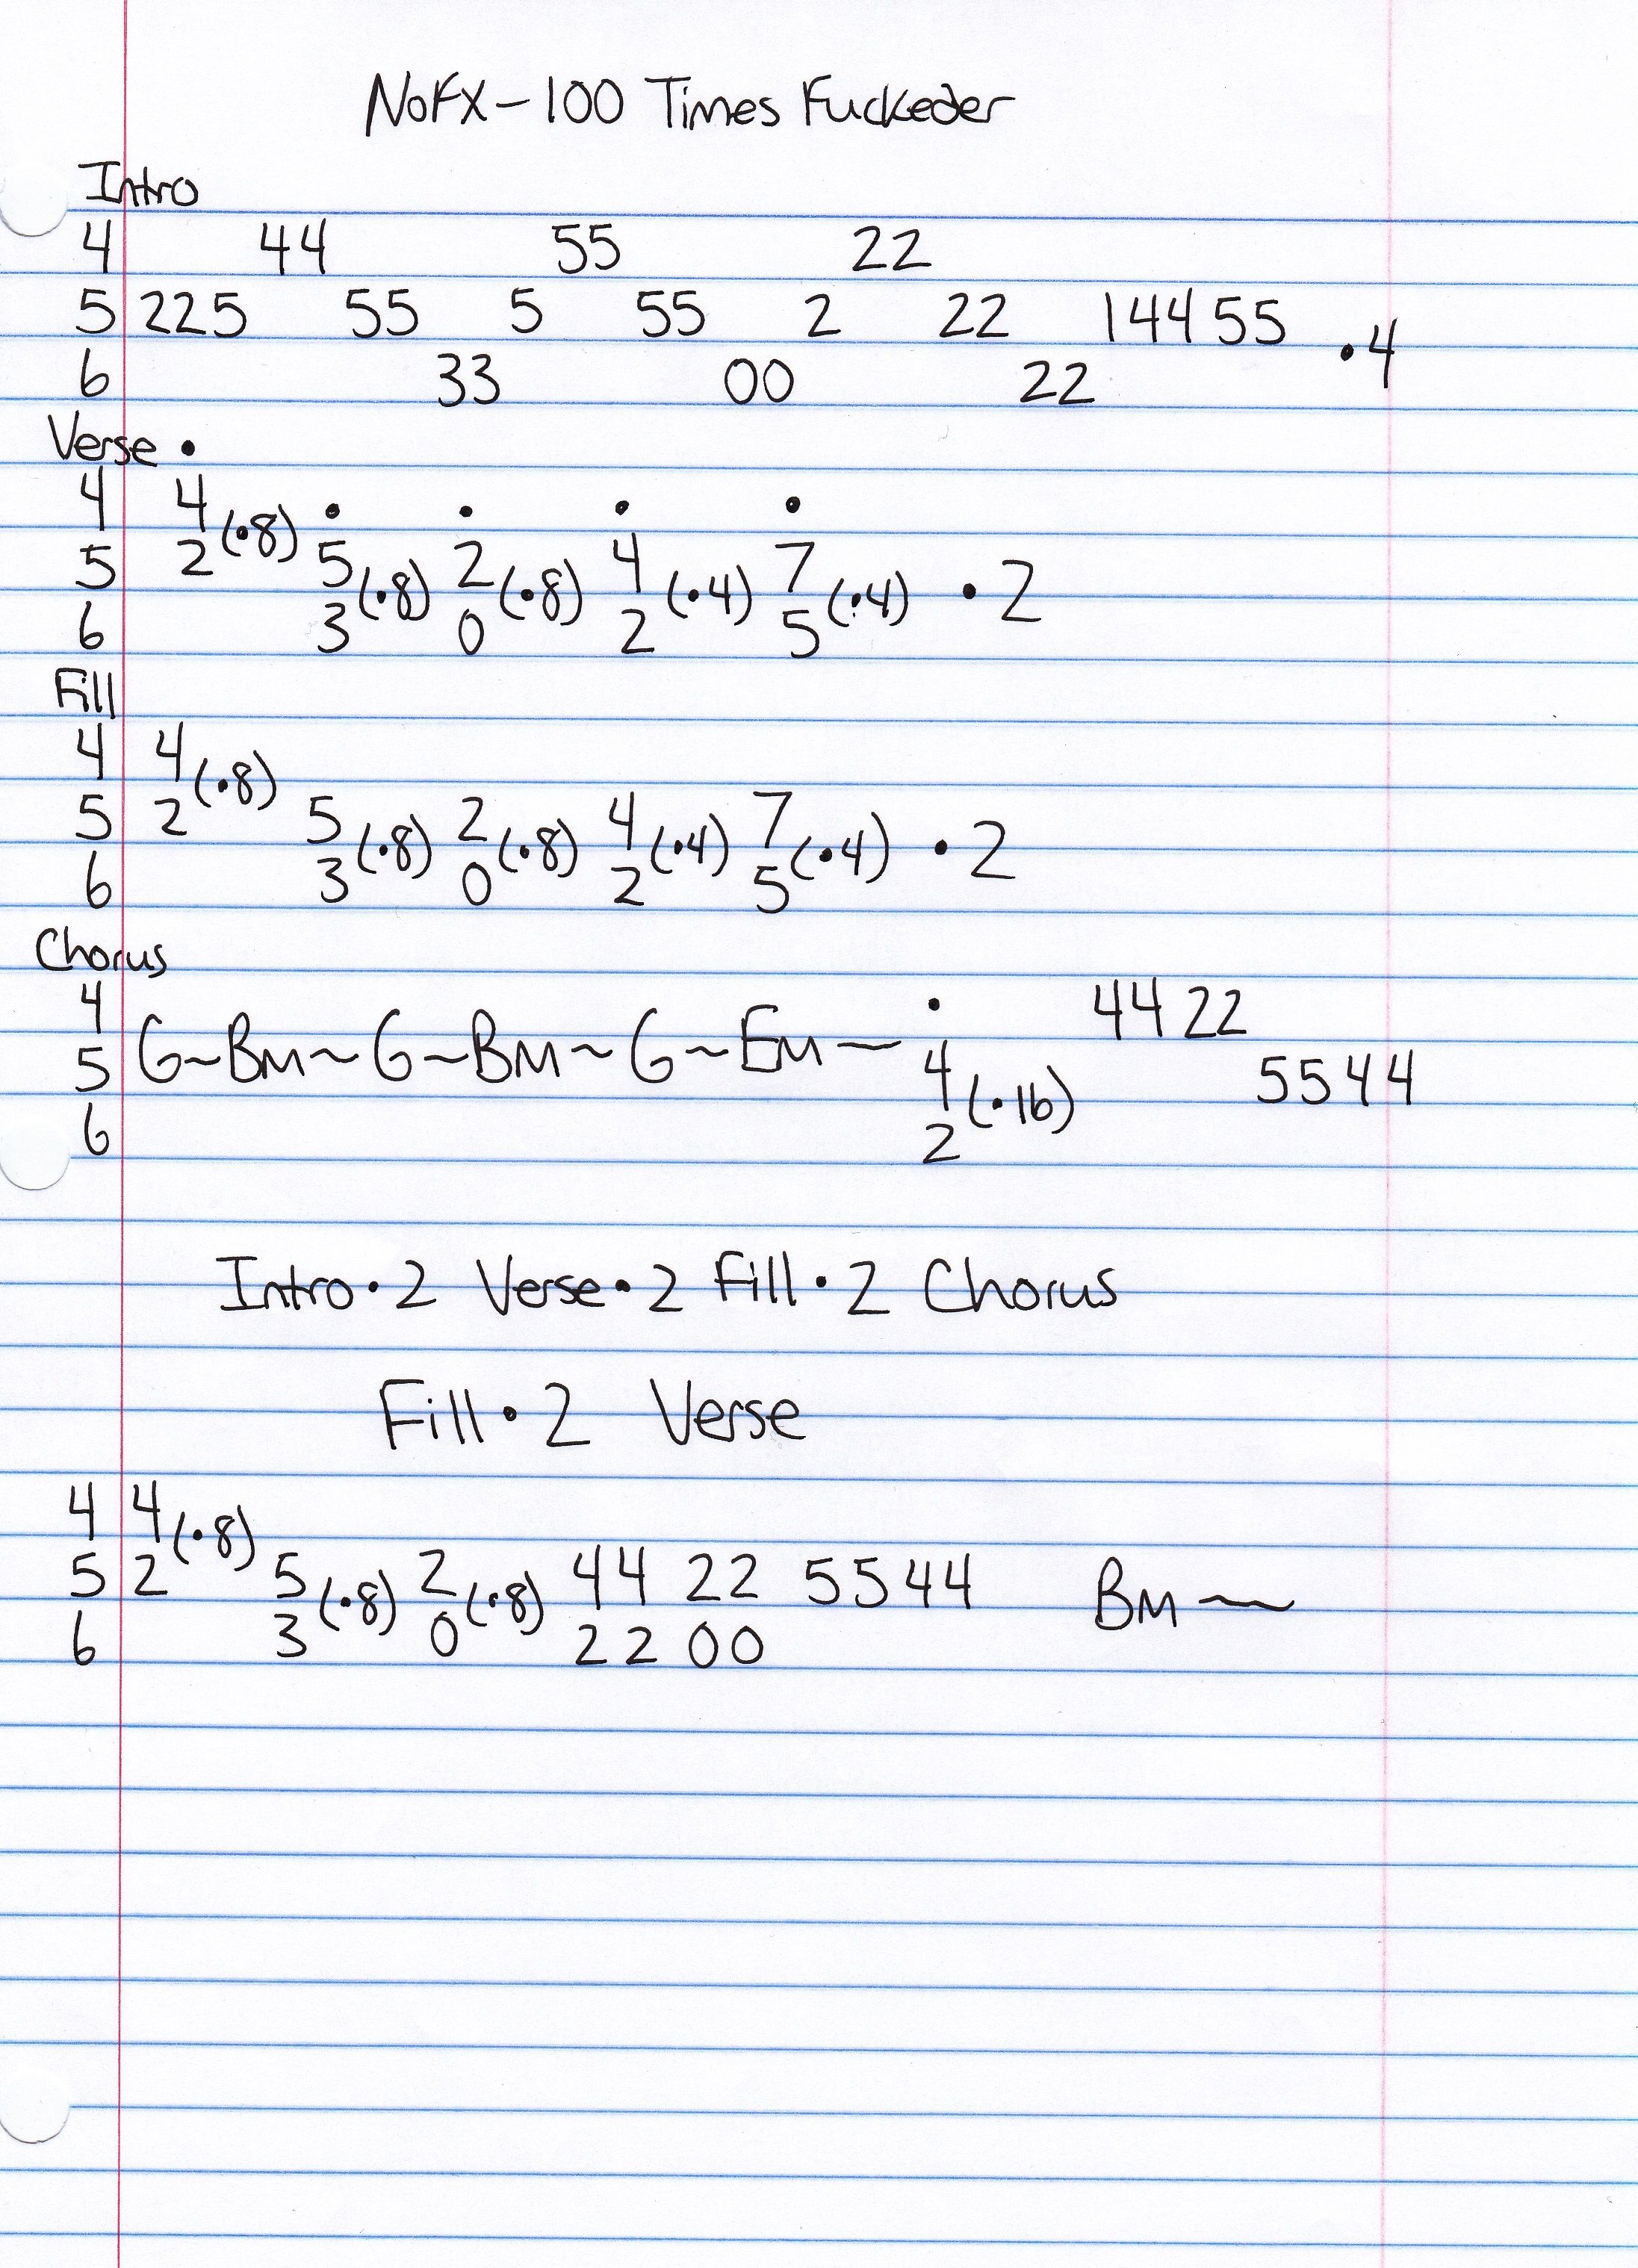 NoFX - 100 Times Fuckeder
Intro
4 44 55 22
5 225 55 5 55 2 22 14455
6 33 00 22 •4
Verse •
4 4 (•8) • • • •
5 2 5 (•8) 2 (•8) 4 (•4) 7 (•4) •2
6 3 0 2 5
Fill
4 4 (•8)
5 2 5 (•8) 2 (•8) 4 (•4) 7 (•4) •2
6 3 0 2 5
Chorus
4 • 44 22
5 G~Bm~G~Bm~G~Em~ 4 (•16) 5544
6 2
Intro•2 Verse•2 Fill•2 Chorus
Fill•2 Verse
4 4 (•8)
5 2 5 (•8) 2 (•8) 44 22 5544 Bm~
6 3 0 22 00